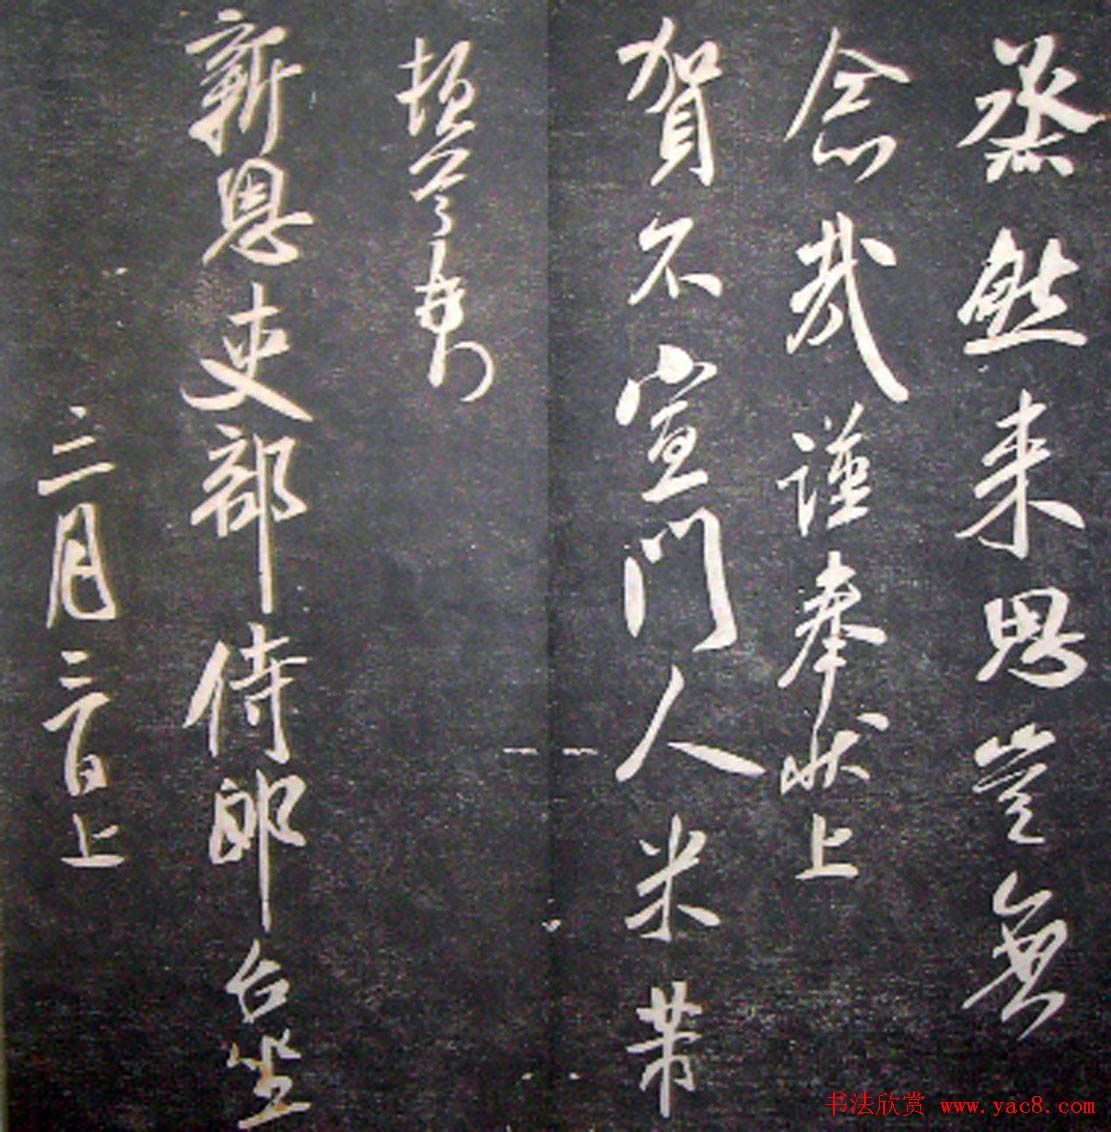 蒸然来思豈無
念哉謹奉状上
賀不宣門人米芾
頓首再拜
新恩吏部侍郎台坐
三月三日上
书法欣赏 www.yac8.com